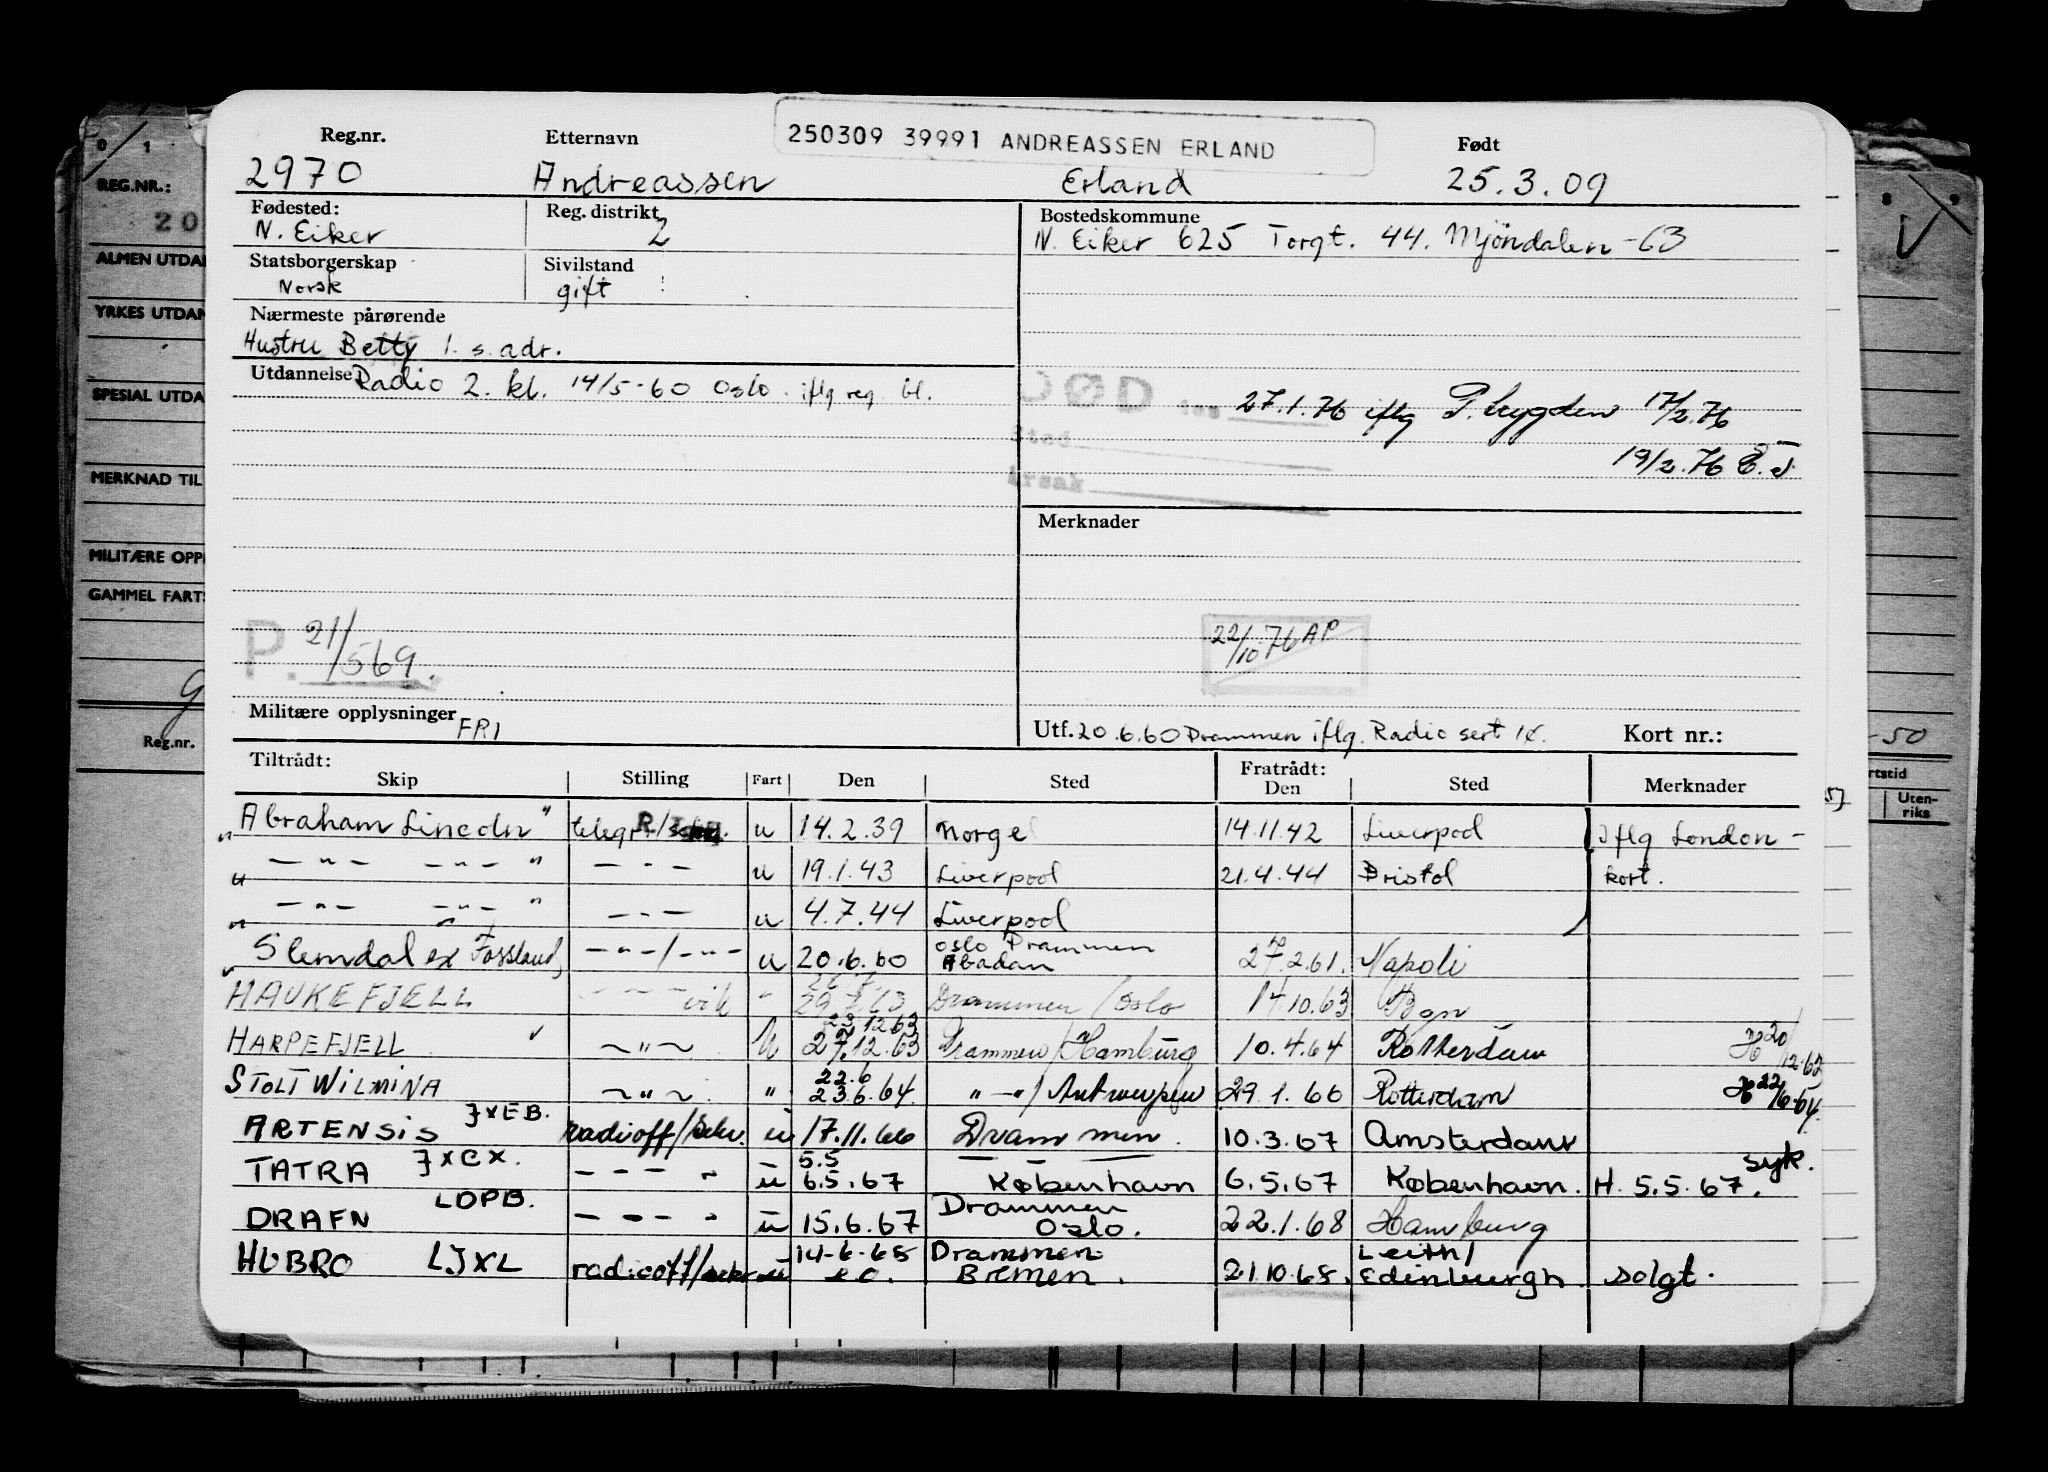 250309 39991 ANDREASSEN ERLAND
Reg.nr. Etternavn Født
2970 Andreassen Erland 25.3.09
Fødested: Reg. distrikt Bostedskommune
N. Eiker 2 N. Eiker 625 Torgt. 44. Mjöndalen -63
Statsborgerskap Sivilstand
Norsk gift
Nærmeste pårørende
Hustru Betty l. s. adr.
Utdannelse Radio 2. kl. 14/5-60 Oslo. iflg reg. bl.
DØD 27.1.76 iflg 17/2.76
Sted
19/2.76
Årsak
Merknader
P. 21/569.
22/10 76 AP
Militære opplysninger FRI
Utf. 20.6.60 Drammen iflg. Radio sert Kort nr.:
Tiltrådt: Fratrådt:
Skip Stilling Fart Den Sted Den Sted Merknader
Abraham Lincoln " telegr. u 14.2.39 Norge 14.11.42 Liverpool Iflg London-
— " — — " — " — " — u 19.1.43 Liverpool 21.4.44 Bristol kort.
— " — — " — " — " — u 4.7.44 Liverpool
Slemdal ex Fossland — " — / — " — u 20.6.60 Oslo Drammen Abadan 27.2.61. Napoli
HAUKEFJELL " Drammen / Oslo 14.10.63 Bgn
HARPEFJELL ~ " ~ u 23.12.63 27.12.63 Drammen / Hamburg 10.4.64 Rotterdam 20/12.63
STOLT WILMINA ~ " ~ " 22.6 23.6.64 " — " / Antwerpen 29.1.66 Rotterdam 22/6.64
ARTENSIS JXEB. radiooff/sekr. u 17.11.66 Drammen. 10.3.67 Amsterdam
TATRA JXCX. — — — " u 5.5 6.5.67 København 6.5.67 København. H. 5.5.67. syk.
DRAFN LDPB. — — — " u 15.6.67 Drammen Oslo. 22.1.68 Hamburg
HUBRO LJXL radiooff/sekr u 14-6-68 Drammen Bremen. 21.10.68. Leith/ Edinburgh. solgt.
REG.NR.:
20
ALMEN UTDAN
YRKES UTDAN
SPESIAL UTDA
MERKNAD TIL
MILITÆRE OPP
GAMMEL FARTS
Reg.nr.
-50
rtstid
Uten-
riks